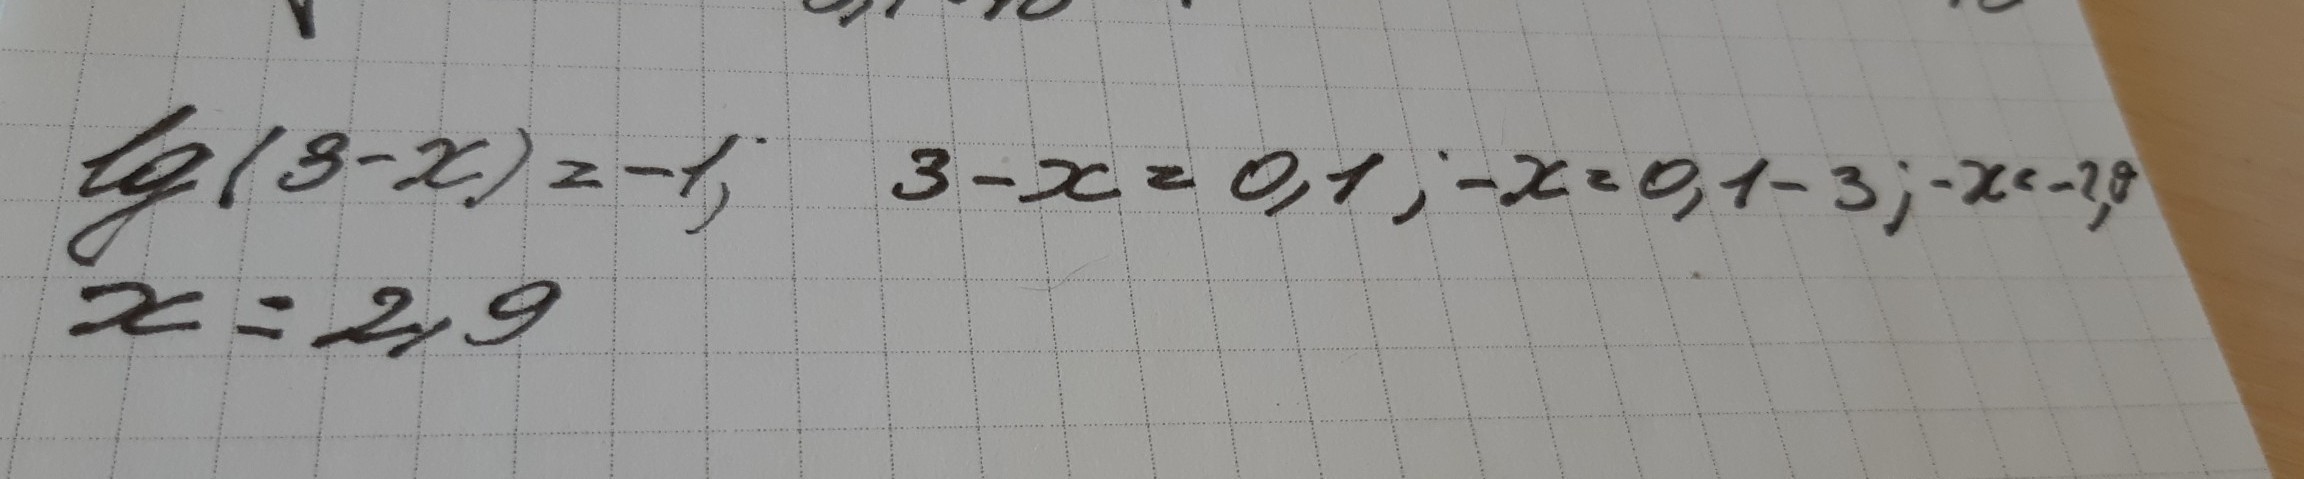 lg(3-x)=-1; 3-x=0,1; -x=0,1-3; -x=-2,9
x=2,9